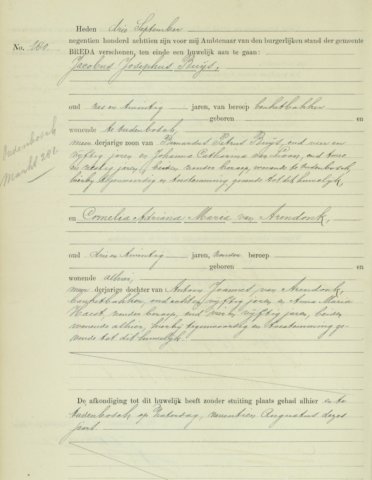 Heden drie September
negentien honderd achttien zijn voor mij Ambtenaar van den burgerlijken stand der gemeente
No. 260. BREDA verschenen, ten einde een huwelijk aan te gaan:
Jacobus Josephus Buijs,
oud zes en twintig jaren, van beroep banketbakker
geboren en
wonende te Oudenbosch,
meerderjarige zoon van Bernardus Petrus Buijs, oud vier en
vijftig jaren en Johanna Catharina van Loon, oud twee
en zestig jaren, beiden zonder beroep, wonende te Oudenbosch,
hierbij tegenwoordig en toestemming gevende tot dit huwelijk,
Oudenbosch
Markt 202.
en Cornelia Adriana Maria van Arendonk,
oud drie en twintig jaren, zonder beroep
geboren en
wonende alhier,
meerderjarige dochter van Antoon Joannes van Arendonk,
banketbakker, oud acht en vijftig jaren en Anna Maria
zonder beroep, oud vier en vijftig jaren, beiden
wonende alhier, hierbij tegenwoordig en toestemming ge-
vende tot dit huwelijk.
De afkondiging tot dit huwelijk heeft zonder stuiting plaats gehad alhier en te
Oudenbosch op Zaterdag, Augustus dezes
jaars